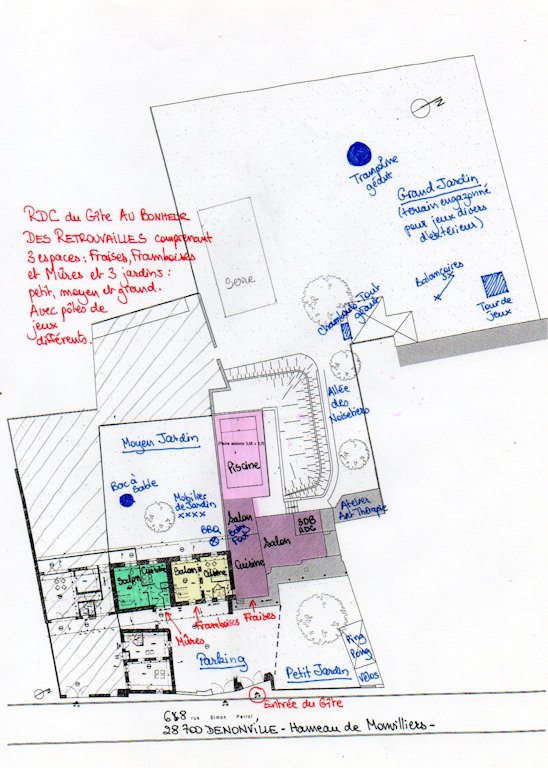 Trampoline
géant
Grand Jardin
(terrain engazonné
pour jeux divers
d'extérieur)
RDC du Gîte AU BONHEUR
DES RETROUVAILLES comprenant
3 espaces : Fraises, Framboises
et Mûres et 3 jardins :
petit, moyen et grand.
Avec pôles de
jeux
différents.
Serre
Balançoires
Tour de
jeux
Chamboule-Tout
géant
Allée
des
Noisetiers
Moyen Jardin
Piscine
Bac à
Sable
Mobilier
de Jardin
xxxx
BBQ
Salon
Baby
Foot
Cuisine
Salon
SDB
RDC
Atelier
Art-Thérapie
Salon
Cuisine
Salon
Cuisine
Mûres
Framboises
Fraises
Parking
Petit Jardin
Ping
Pong
Vélos
Entrée du Gîte
6&8 rue Simon Perrot,
28700 DENONVILLE - Hameau de Monvilliers -